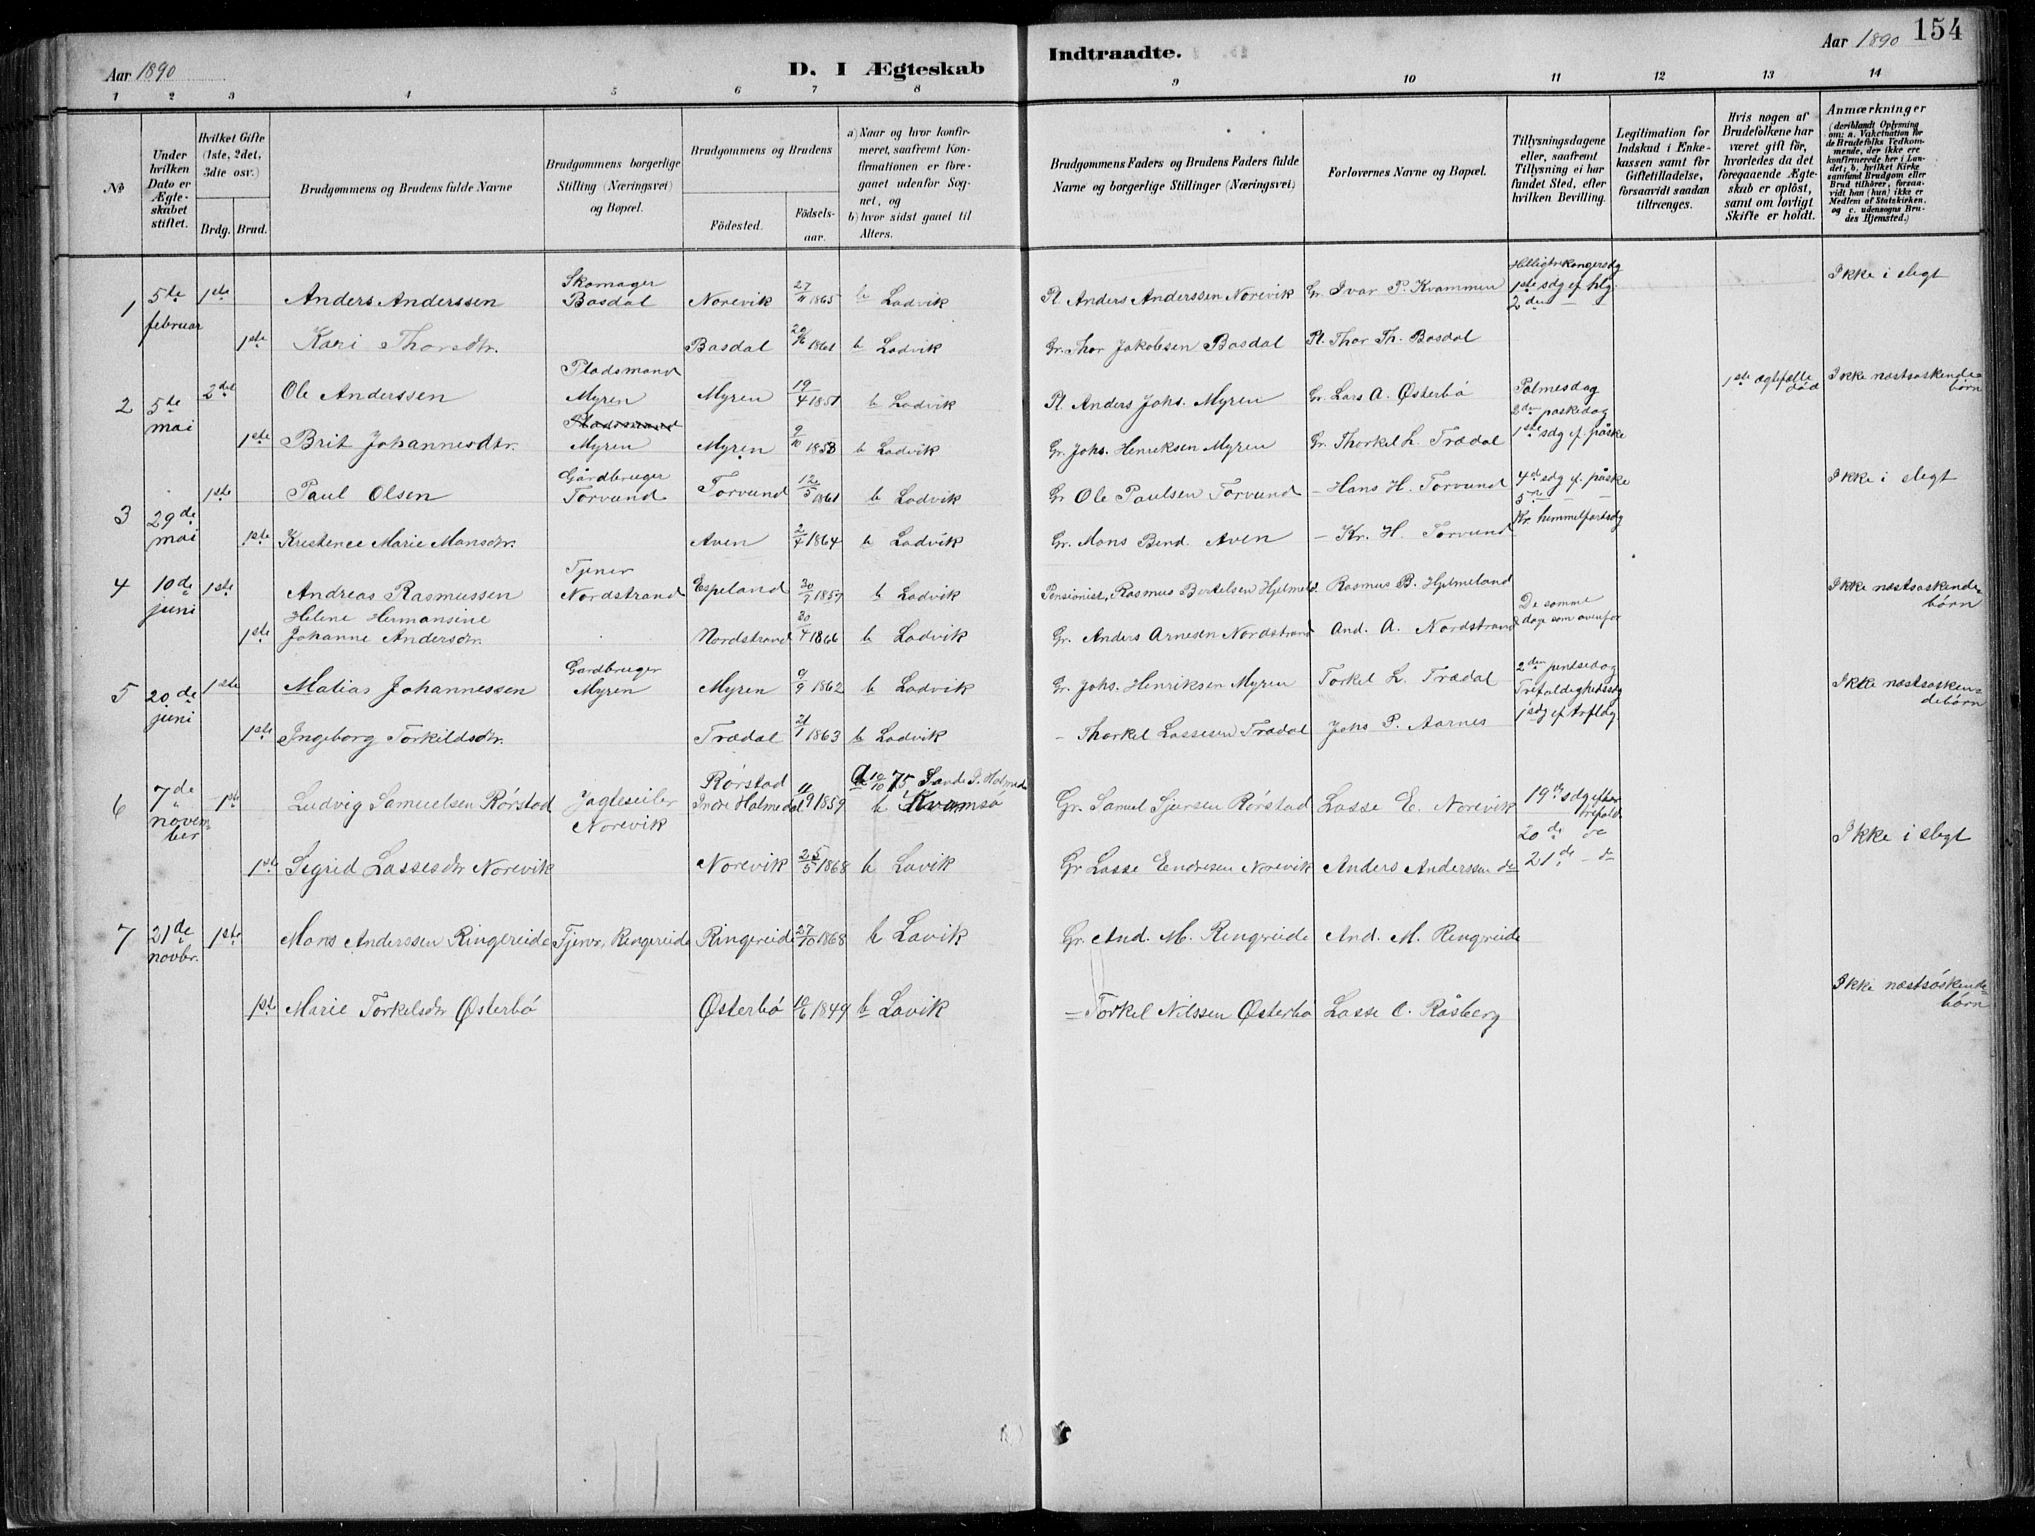 Aar 1890
D. I Ægteskab
Indtraadte.
Aar 1890
154
1 2 3 4 5 6 7 8 9 10 11 12 13 14
No
Under hvilken Dato er Ægteskabet stiftet.
Hvilket Gifte (1ste, 2det, 3dte osv.)
Brdg. Brud.
Brudgommens og Brudens fulde Navne
Brudgommens borgerlige Stilling (Næringsvei) og Bopæl.
Brudgommens og Brudens
Födested.
Födselsaar.
a) Naar og hvor konfirmeret, saafremt Konfirmationen er foreganet udenfor Sognet, og
b) hvor sidst gaaet til Alters.
Brudgommens Faders og Brudens Faders fulde Navne og borgerlige Stillinger (Næringsvei)
Forlovernes Navne og Bopæl.
Tillysningsdagene eller, saafremt Tillysning ei har fundet Sted, efter hvilken Bevilling.
Legitimation for Indskud i Enkekassen samt for Giftetilladelse, forsaavidt saadan tiltrænges.
Hvis nogen af Brudefolkene har været gift før, hvorledes da det foregaaende Ægteskab er oplöst, samt om lovligt Skifte er holdt.
Anmærkninger
(deriblandt Oplysning om: a. Vakcination for de Brudefolks Vedkommende, der ikke ere konfirmerede her i Landet; b. hvilket Kirkesamfund Brudgom eller Brud tilhörer, forsaavidt han (hun) ikke er Medlem af Statskirken. og c. udensogns Brudes Hjemsted.)
1 5te februar 1ste Anders Anderssen Skomager Basdal Norevik 27/11 1865 b Ladvik Pl. Anders Anderssen Norevik Gr. Ivar P. Kvammen Helligtrekongersdg 1ste sdg ef. hlg. 2den — Ikke i slegt
1ste Kari Thorsdtr. Basdal 20/6 1861 b Ladvik Gr. Thor Jakobsen Basdal Pl. Thor Th. Basdal
2 5te mai 2det Ole Anderssen Pladsmand Myren Myren 19/4 1851 b Ladvik Pl. Anders Johs. Myren Gr. Lars A. Østerbö Palmesdag 2den paskedag 1ste ægtefælle död Ikke næstsøskendebörn
1ste Brit Johannesdtr. Pladsmand Myren Myren 9/10 1853 b Ladvik Gr. Johs. Henriksen Myren Gr. Thorkel L. Trædal 1ste sdg ef. påske
3 29de mai 1ste Paul Olsen Gårdbruger Torvund Torvund 12/5 1861 b Ladvik Gr. Ole Paulsen Torvund — Hans H. Torvund 4de sdg ef. påske 5te — Ikke i slegt
1ste Kristence Marie Monsdtr. Aven 2/4 1864 b Ladvik Gr. Mons Bend. Aven — Kr. H. Torvund Kr. himmelfartsdg
4 10de juni 1ste Andreas Rasmussen Tjener Nordstrand Espeland 30/7 1857 b Ladvik Pensionist, Rasmus Bertelsen Hjelmel. Rasmus B. Hjelmeland Ikke næstsøskendebörn
1ste Helene Hermansine Johanne Andersdtr. Nordstrand 30/4 1866 b Ladvik Gr. Anders Arnesen Nordstrand And. A. Nordstrand De samme dage som ovenfor
5 20de juni 1ste Matias Johannessen Gardbruger Myren Myren 9/9 1862 b Ladvik Gr. Johs. Henriksen Myren Torkel L. Trædal 2den pintsedag Trefoldighedssdg Ikke næstsøskendebörn
1ste Ingeborg Torkildsdtr. Trædal 21/1 1863 b Ladvik — Thorkel Lassesen Trædal Johs P. Aarnes 1 sdg ef trfldg.
6 7de november 1ste Ludvig Samuelsen Rörstad Jagteseiler Norevik Rörstad Indre Holmedal 11/9 1859 a 10/10 75 Sande I. Holmed b Kvamsö Gr. Samuel Sjursen Rörstad Lasse E. Norevik 19de sdg efter trefold. 20de do Ikke i slegt
1ste Sigrid Lassesdtr Norevik Norevik 25/5 1868 b Lavik Gr Lasse Endresen Norevik Anders Anderssen do 21de — do
7 21de novbr. 1ste Mons Anderssen Ringereide Tjener, Ringereide Ringereide 27/10 1868 b Lavik Gr. And. M. Ringreide And. M. Ringreide
1ste Marie Torkelsdtr Østerbö Østerbö 10/6 1849 b Lavik — Torkel Nilssen Østerbö Lasse C. Råsberg Ikke næstsöskendebörn